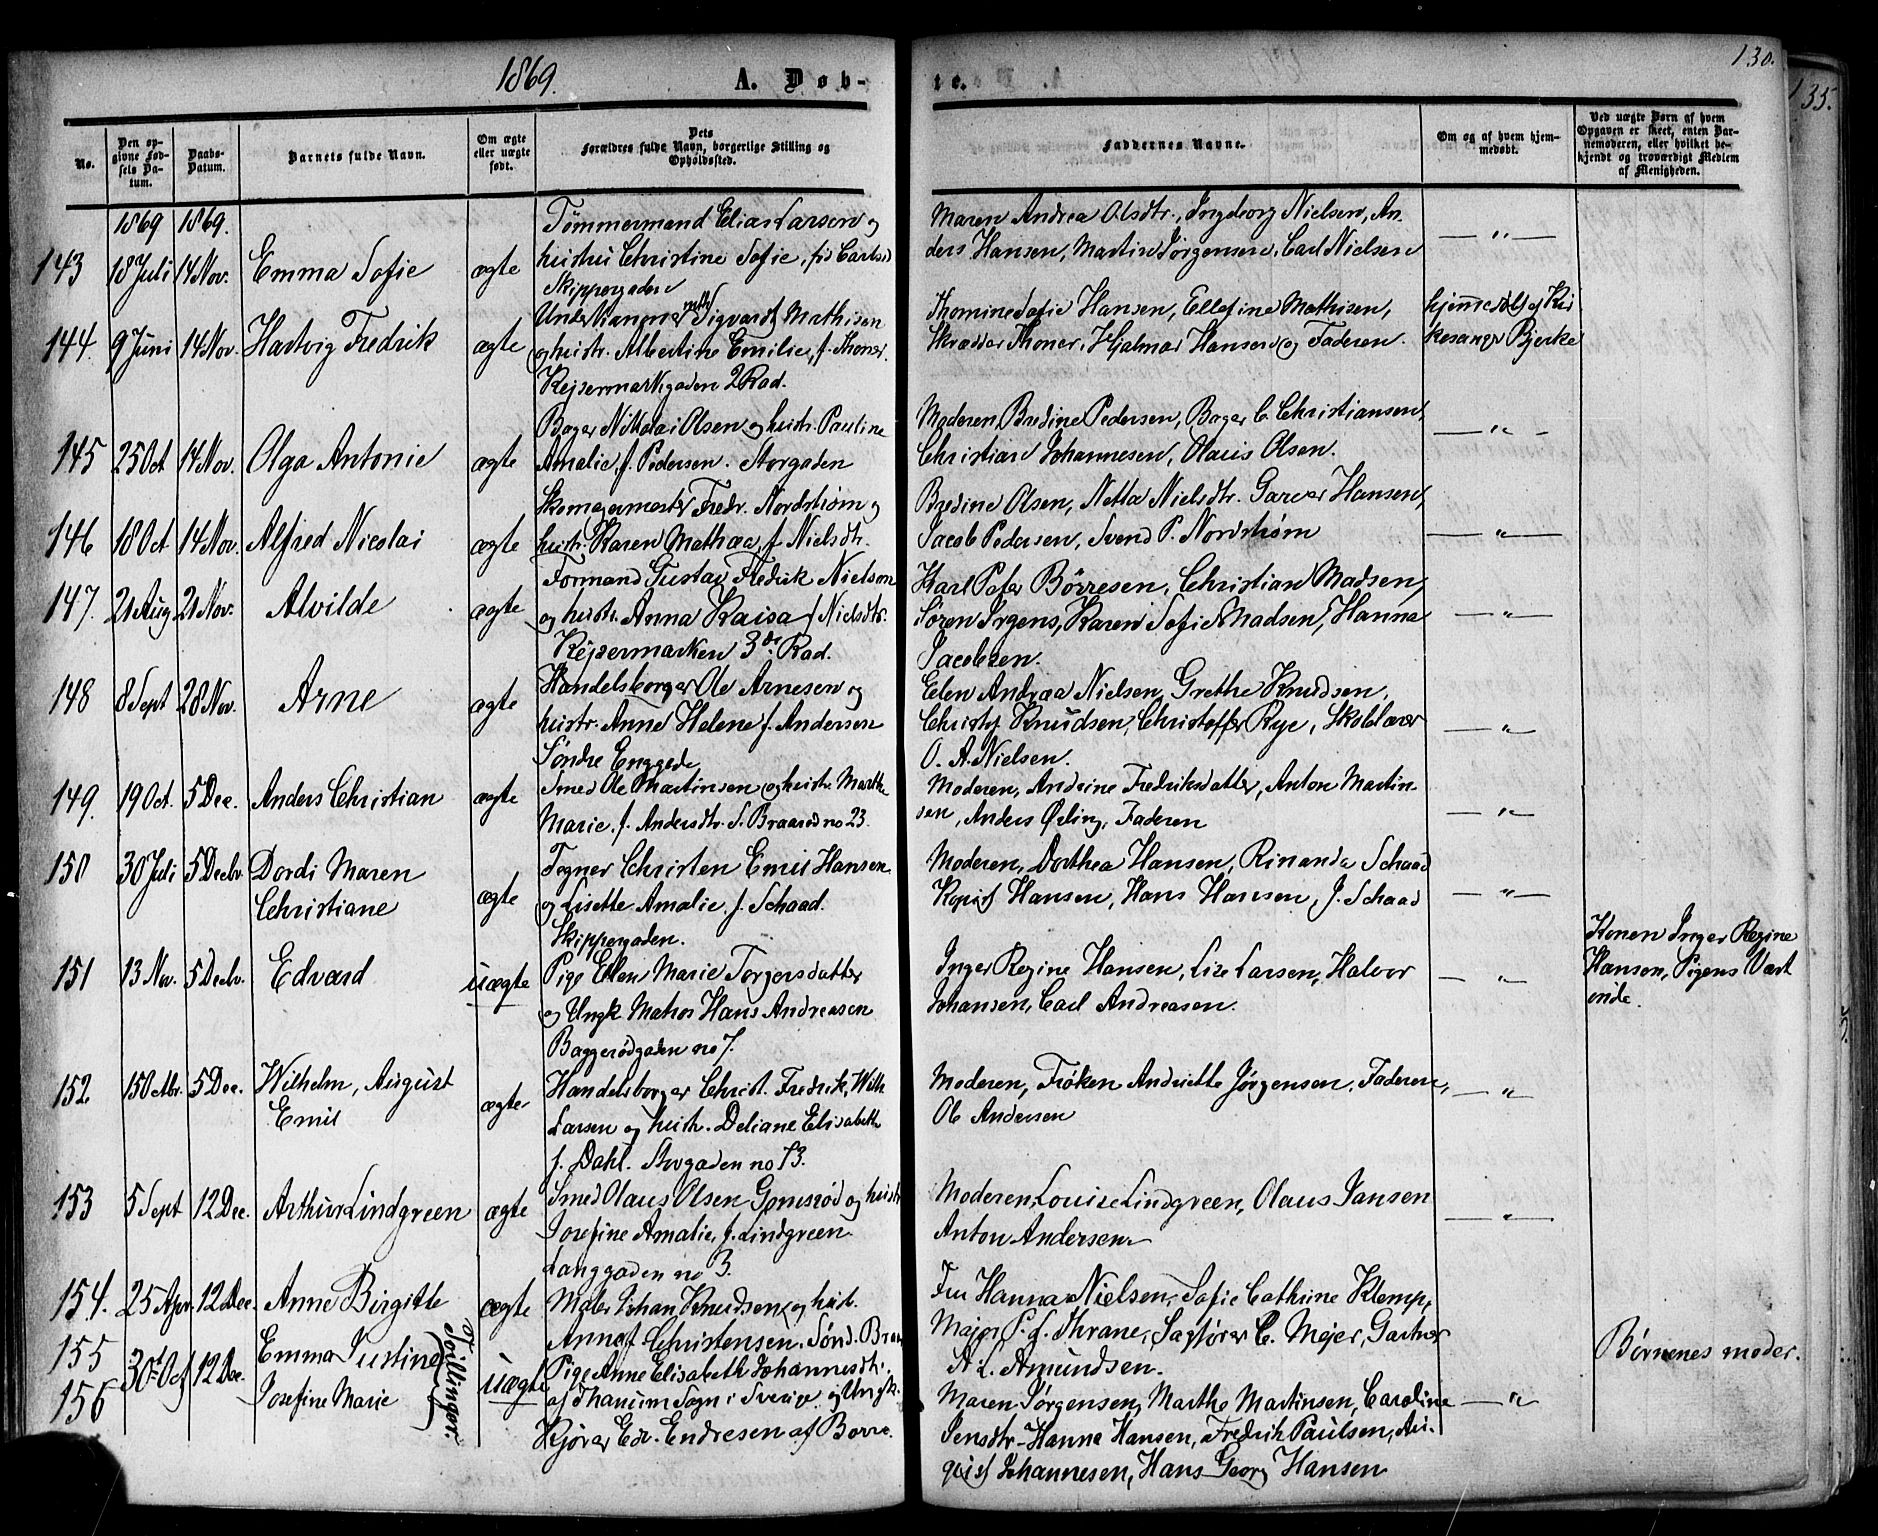 1869.
A. Døb-
te.
130.
135.
No.
Den op-
givne Fød-
sels Da-
tum.
Daabs-
Datum.
Barnets fulde Navn.
Om ægte
eller uægte
født.
Dets
Forældres fulde Navn, borgerlige Stilling og
Opholdssted.
Faddernes Navne.
Om og af hvem hjem-
medøbt.
Ved uægte Børn af hvem
Opgaven er skeet, enten Bar-
nemoderen, eller hvilket be-
kjendt og troværdigt Medlem
af Menigheden.
1869 1869.
143 18 Juli 14 Nov. Emma Sofie ægte
Tømmermand Elias Larsen og
hustru Christine Sofie, f.
Skippergaden
Maren Andrea Olsdtr., Ingeborg Nielsen, An-
ders Hansen, Martin Jørgensen, Carl Nielsen
— " —
144. 9 Juni 14 Nov. Hartvig Fredrik ægte
Sigvardt Mathisen
og hustr. Albertine Emilie, f. Thoner.
Kejsermarkgaden 2 Rad.
Thomine Sofie Hansen, Ellefine Mathisen,
Skrædder Thoner, Hjalmar Hansen og Faderen.
hjemmedøbt af Kir
kesanger Bjerke
145 25 Oct 14 Nov. Olga Antonie ægte
Bager Nikolai Olsen og hustr. Pauline
Amalie, f. Pedersen. Storgaden
Moderen, Bredine Pedersen, Bager C. Christiansen,
Christian Johannesen, Olaus Olsen.
— " —
146 18 Oct 14 Nov. Alfred Nicolai ægte
Skomagermester Fredr. Nordstrøm og
hustr. Karen Mathea, f. Nielsdtr.
Bredine Olsen, Netta Nielsdtr. Garver Hansen,
Jacob Pedersen, Svend P. Nordstrøm
— " —
147. 21 Aug 21 Nov. Alvilde ægte
Formand Gustav Fredrik Nielsen
og hustr. Anna Kaisa f Nielsdtr.
Kejsermarken 3de Rad.
Karl Peter Børresen, Christian Madsen,
Søren Irgens, Karen Sofie Madsen, Hanna
Jacobsen.
— " —
148 8 Sept 28 Nov. Arne ægte
Handelsborger Ole Arnesen og
hustr. Anne Helene f. Andersen
Søndre Enggade
Elen Andrea Nielsen, Grethe Knudsen,
Christof Knudsen, Christoffer Rye, Skolelærer
O. A. Nielsen.
— " —
149. 19 Oct. 5 Dec. Anders Christian ægte
Smed Ole Martinsen og hustr. Marthe
Marie. f. Andersdtr. S. Braarød no 23.
Moderen, Andrine Fredriksdatter, Anton Martin
sen, Anders Ørling, Faderen
— " —
150 30 Juli 5 Decbr. Dordi Maren
Christiane
ægte
Togner Christen Emil Hansen
og Lisette Amalie, f. Schaad.
Skippergaden.
Moderen, Dorthea Hansen, Rinanda Schaad
Kopist Hansen, Hans Hansen, J. Schaad
— " —
151 13 Nov. 5 Decbr. Edvard uægte
Pige Ellen Marie Torgersdatter
og Ungk. Matros Hans Andreasen
Baggerødgaden no 7.
Inger Regine Hansen, Lise Larsen, Halvor
Johansen, Carl Andreasen.
— " —
Konen Inger Regine
Hansen, Pigens Vært
inde.
152 15 Octbr. 5 Dec. Wilhelm, August
Emil
ægte
Handelsborger Christ. Fredrik, Wilh
Larsen og hustr. Deliane Elisabeth
f. Dahl. Storgaden no 73.
Moderen, Frøken Andriette Jørgensen. Faderen,
Ole Andersen
— " —
153 5 Sept 12 Dec. Arthur Lindgreen ægte
Smed Olaus Olsen Gomsrød og hustr
Josefine Amalie, f. Lindgreen
Langgaden no 3.
Moderen, Louise Lindgreen, Olaus Jansen
Anton Andersen
— " —
154. 25 Apr. 12 Dec. Anne Birgitte ægte
Maler Johan Knudsen og hust.
Anne f Christensen. Sønd. Braa
Fru Hanna Nielsen, Sofie Cathrine Klemp,
Major P. f. Thrane, Sagfører C. Mejer, Gartner
A. L. Amundsen.
155
156
30te Oct 12 Dec. Emma Justine
Josefine Marie
Tvillinger.
uægte
Pige Anne Elisabeth Johannesdtr.
af Thanum Sogn i Sverige og Ungk.
Kjører Edv. Endresen af Borre.
Maren Jørgensen, Marthe Martinsen, Caroline
Jensdtr. Hanna Hansen, Fredrik Paulsen, Au-
gust Johannesen, Hans Georg Hansen
— " —
Børnenes moder.